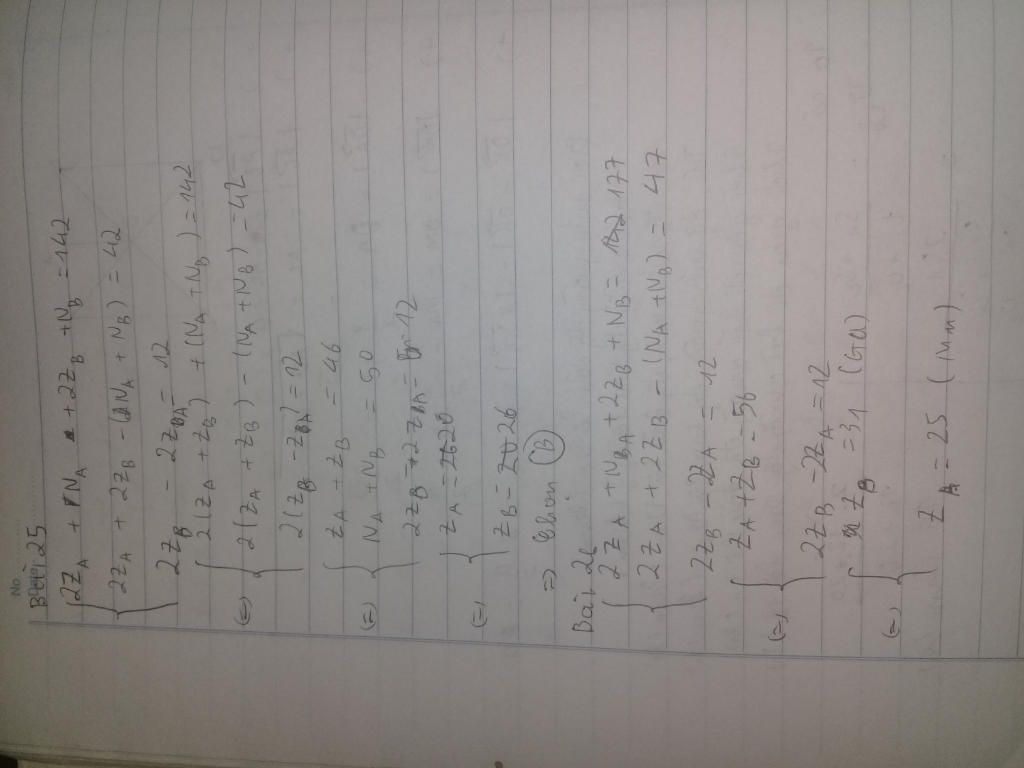 No.
Bài 25
2Z_A + N_A + 2Z_B + N_B = 142
2Z_A + 2Z_B - (N_A + N_B) = 42
2Z_B - 2Z_A = 12
2(Z_A + Z_B) + (N_A + N_B) = 142
(=) 2(Z_A + Z_B) - (N_A + N_B) = 42
2(Z_B - Z_A) = 12
Z_A + Z_B = 46
(=) N_A + N_B = 50
2Z_B - 2Z_A = 12
Z_A = 20
(=)
Z_B = 26
=> Chọn (B)
Bài 26
2Z_A + N_A + 2Z_B + N_B = 177
2Z_A + 2Z_B - (N_A + N_B) = 47
2Z_B - 2Z_A = 12
Z_A + Z_B = 56
(=) 2Z_B - 2Z_A = 12
Z_B = 31 (Ga)
(=)
Z_A = 25 (Mn)